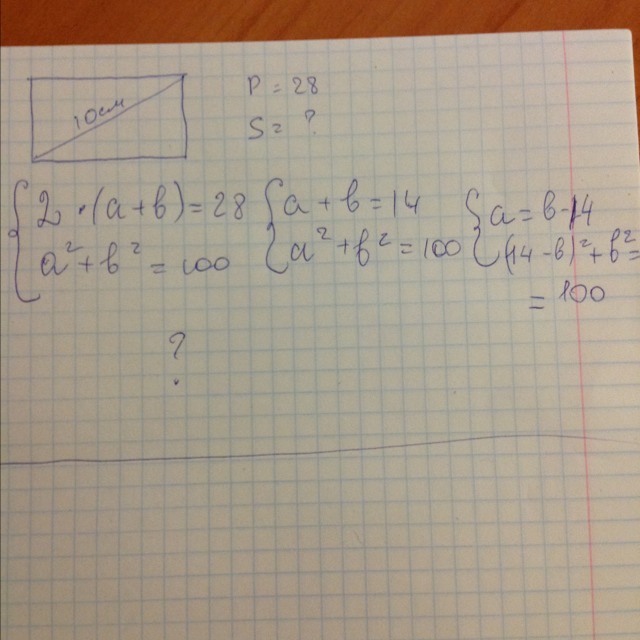 10см
P = 28
S = ?
{ 2 · (a + b) = 28 { a + b = 14 { a = b 14
a² + b² = 100 a² + b² = 100 (14 - b)² + b² =
= 100
?